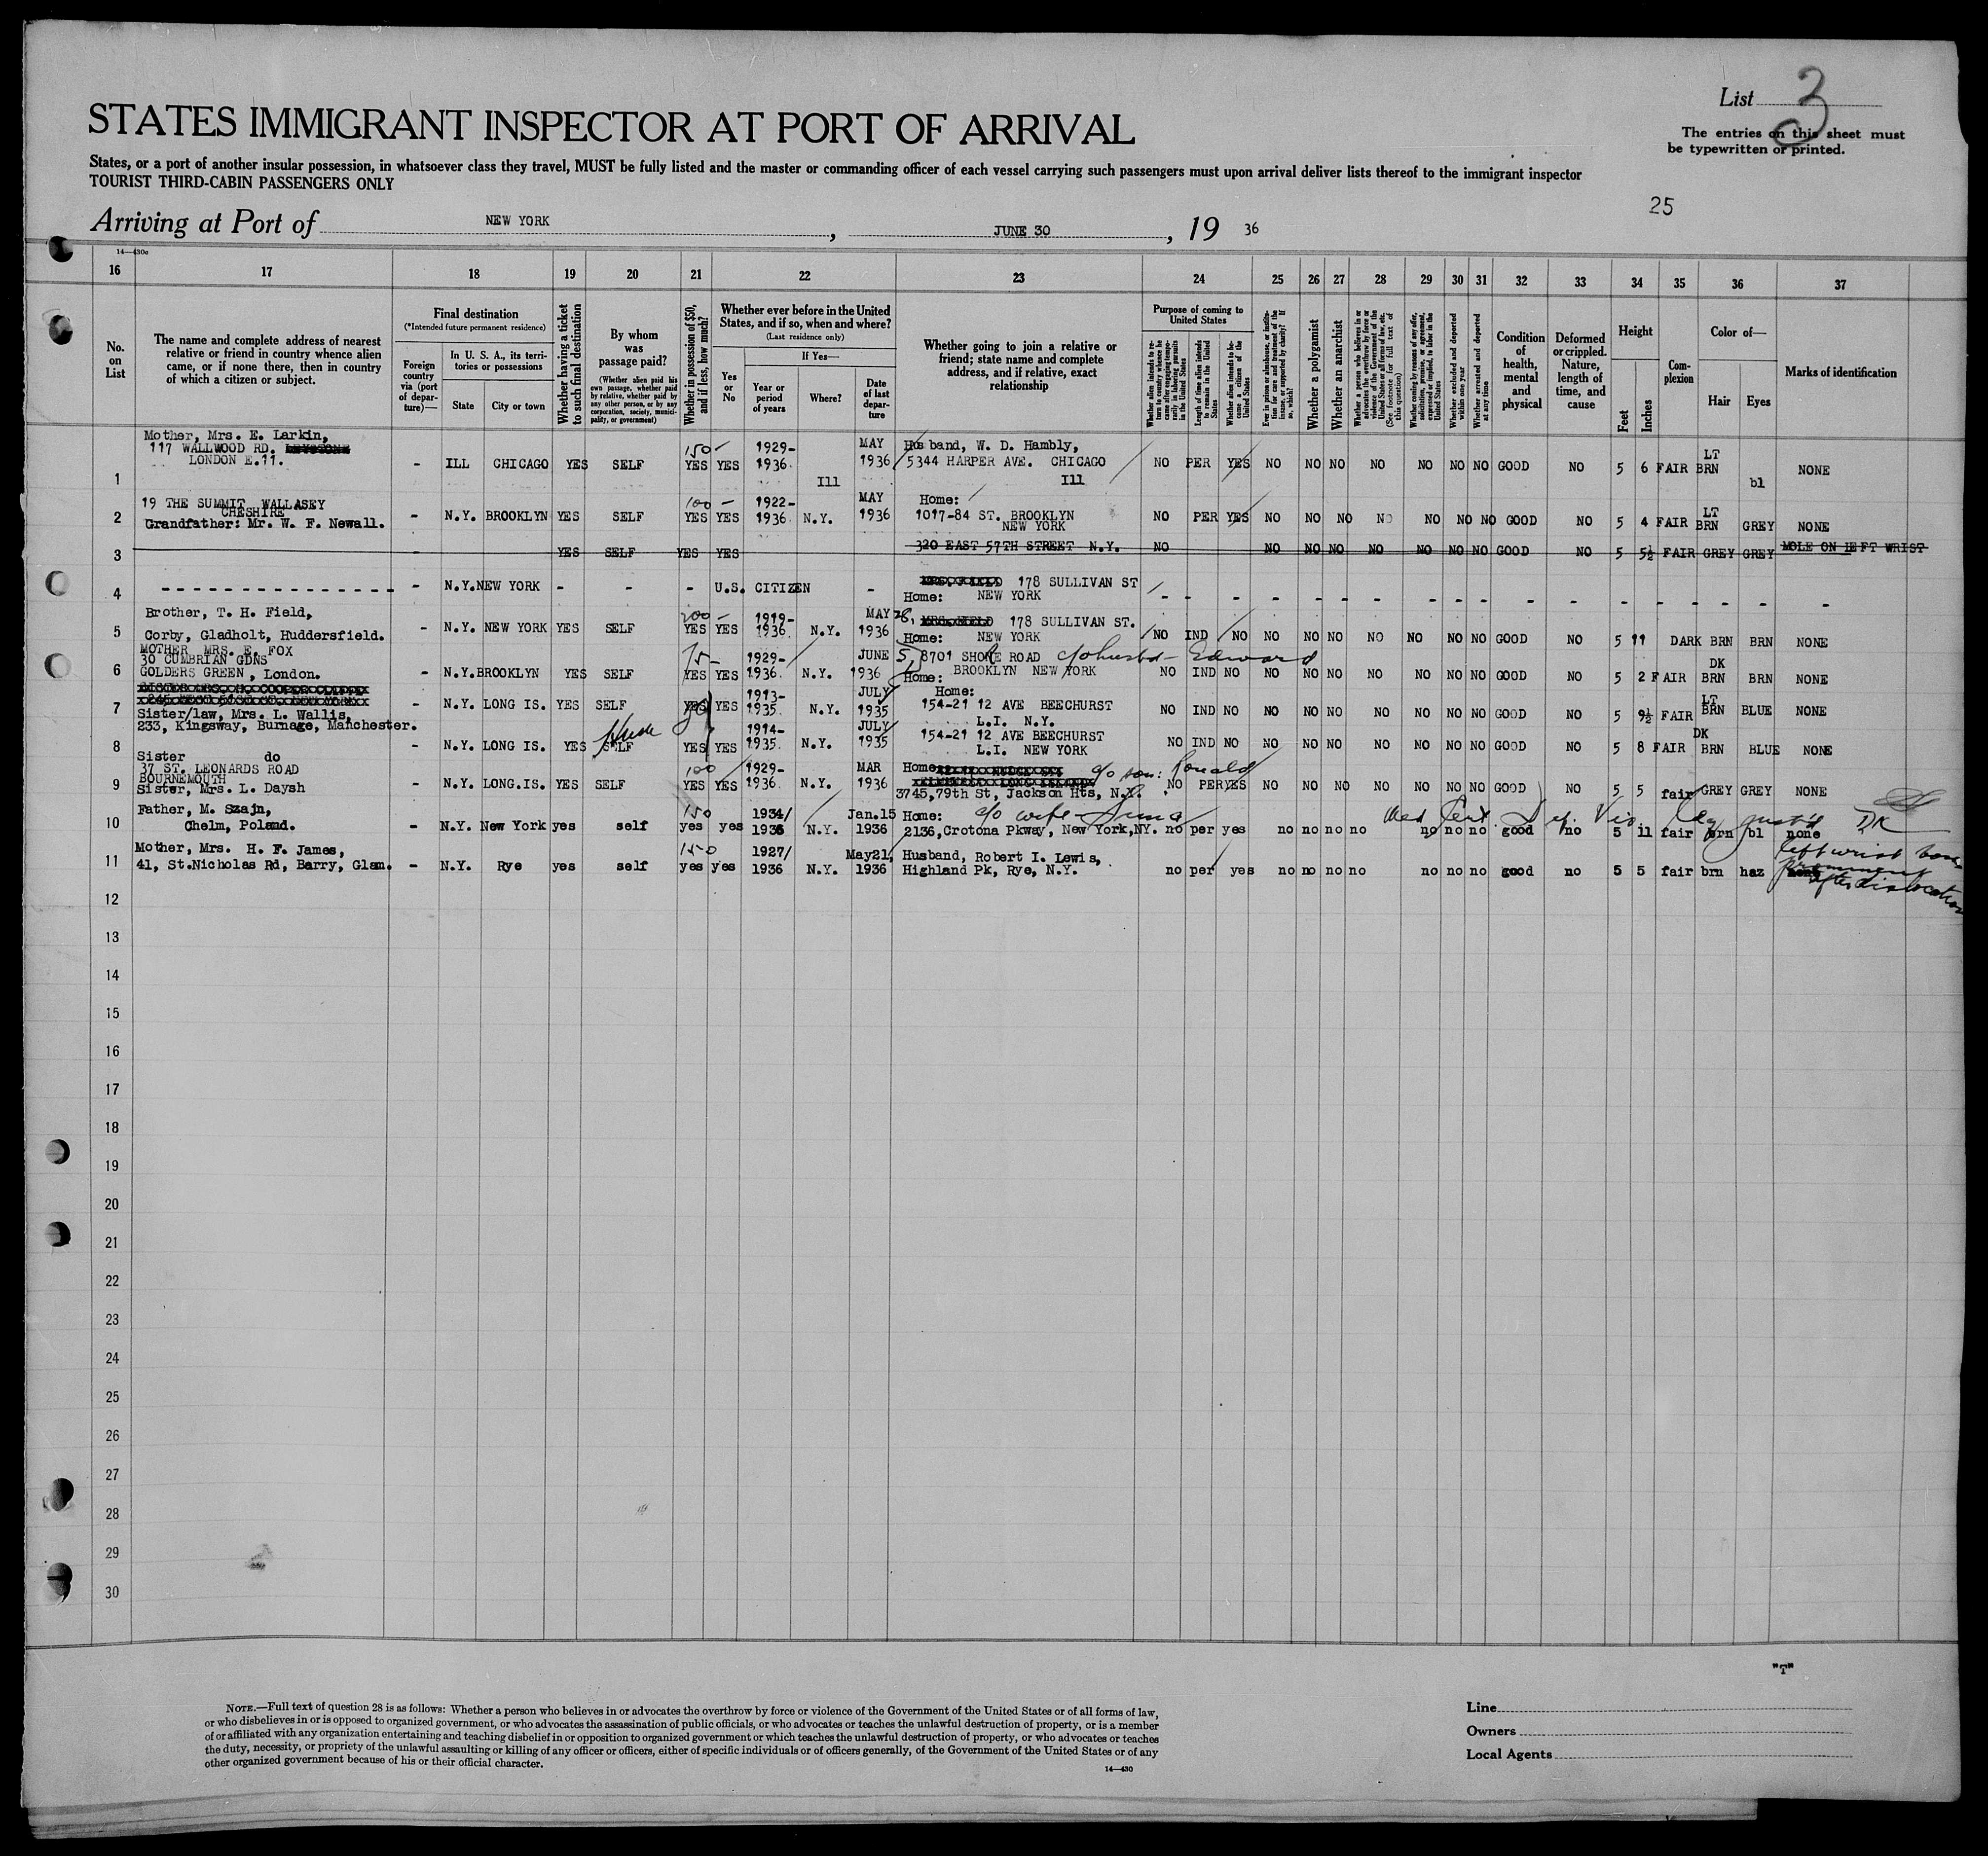 List 3
STATES IMMIGRANT INSPECTOR AT PORT OF ARRIVAL
The entries on this sheet must
be typewritten or printed.
States, or a port of another insular possession, in whatsoever class they travel, MUST be fully listed and the master or commanding officer of each vessel carrying such passengers must upon arrival deliver lists thereof to the immigrant inspector
TOURIST THIRD-CABIN PASSENGERS ONLY
25
Arriving at Port of NEW YORK, JUNE 30, 19 36
14—430c
16 17 18 19 20 21 22 23 24 25 26 27 28 29 30 31 32 33 34 35 36 37
No. on List
The name and complete address of nearest relative or friend in country whence alien came, or if none there, then in country of which a citizen or subject.
Final destination
(*Intended future permanent residence)
Foreign country via (port of departure)—
In U. S. A., its territories or possessions
State
City or town
Whether having a ticket to such final destination
By whom was passage paid?
(Whether alien paid his own passage, whether paid by relative, whether paid by any other person, or by any corporation, society, municipality, or government)
Whether in possession of $50, and if less, how much?
Whether ever before in the United States, and if so, when and where?
(Last residence only)
Yes or No
If Yes—
Year or period of years
Where?
Date of last departure
Whether going to join a relative or friend; state name and complete address, and if relative, exact relationship
Purpose of coming to United States
Whether alien intends to return to country whence he came after engaging temporarily in laboring pursuits in the United States
Length of time alien intends to remain in the United States
Whether alien intends to become a citizen of the United States
Ever in prison or almshouse, or institution for care and treatment of the insane, or supported by charity? If so, which?
Whether a polygamist
Whether an anarchist
Whether a person who believes in or advocates the overthrow by force or violence of the Government of the United States or all forms of law, etc. (See footnote for full text of this question)
Whether coming by reasons of any offer, solicitation, promise, or agreement, expressed or implied, to labor in the United States
Whether excluded and deported within one year
Whether arrested and deported at any time
Condition of health, mental and physical
Deformed or crippled. Nature, length of time, and cause
Height
Feet
Inches
Complexion
Color of—
Hair
Eyes
Marks of identification
Mother, Mrs. E. Larkin,
117 WALLWOOD RD.
LONDON E.11.
1 - ILL CHICAGO YES SELF 150- YES YES 1929-1936. Ill MAY 1936 Husband, W. D. Hambly,
5344 HARPER AVE. CHICAGO
Ill
NO PER YES NO NO NO NO NO NO NO GOOD NO 5 6 FAIR LT BRN bl NONE
19 THE SUMMIT WALLASEY
CHESHIRE
Grandfather: Mr. W. F. Newall.
2 - N.Y. BROOKLYN YES SELF 100- YES YES 1922-1936. N.Y. MAY 1936 Home:
1017-84 ST. BROOKLYN
NEW YORK
NO PER YES NO NO NO NO NO NO NO GOOD NO 5 4 FAIR LT BRN GREY NONE
3 - YES SELF YES YES 320 EAST 57TH STREET N.Y. NO NO NO NO NO NO NO NO GOOD NO 5 5½ FAIR GREY GREY MOLE ON LEFT WRIST
4 - N.Y. NEW YORK - - - U.S. CITIZEN - 178 SULLIVAN ST
Home: NEW YORK
- - - - - - - - - - - - - - - - -
Brother, T. H. Field,
Corby, Gladholt, Huddersfield.
5 - N.Y. NEW YORK YES SELF 200- YES YES 1919-1936. N.Y. MAY 28, 1936 MRS. FIELD 178 SULLIVAN ST.
Home: NEW YORK
NO IND NO NO NO NO NO NO NO NO GOOD NO 5 11 DARK BRN BRN NONE
MOTHER MRS. E. FOX
30 CUMBRIAN GDNS
GOLDERS GREEN, London.
6 - N.Y. BROOKLYN YES SELF 75- YES YES 1929-1936. N.Y. JUNE 5, 1936 8701 SHORE ROAD c/o husbd - Edward
Home: BROOKLYN NEW YORK
NO IND NO NO NO NO NO NO NO NO GOOD NO 5 2 FAIR DK BRN BRN NONE
Sister/law, Mrs. L. Wallis,
233, Kingsway, Burnage, Manchester.
7 - N.Y. LONG IS. YES SELF YES YES 1913-1935. N.Y. JULY 1935 Home:
154-21 12 AVE BEECHURST
L.I. N.Y.
NO IND NO NO NO NO NO NO NO NO GOOD NO 5 9½ FAIR LT BRN BLUE NONE
8 Sister do - N.Y. LONG IS. YES SELF YES YES 1914-1935. N.Y. JULY 1935 154-21 12 AVE BEECHURST
L.I. NEW YORK
NO IND NO NO NO NO NO NO NO NO GOOD NO 5 8 FAIR DK BRN BLUE NONE
37 ST. LEONARDS ROAD
BOURNEMOUTH
Sister, Mrs. L. Daysh
9 - N.Y. LONG.IS. YES SELF 100 YES YES 1929-1936. N.Y. MAR 1936 Home: c/o son: Ronald
3745, 79th St, Jackson Hts, N.Y.
NO PER YES NO NO NO NO NO NO NO GOOD NO 5 5 fair GREY GREY NONE
Father, M. Szajn,
Chelm, Poland.
10 - N.Y. New York yes self 150 yes yes 1934/1936 N.Y. Jan.15 1936 Home: c/o wife -
2136, Crotona Pkway, New York, NY.
no per yes no no no no no no no good no 5 11 fair brn bl none
Mother, Mrs. H. F. James,
41, St.Nicholas Rd, Barry, Glam.
11 - N.Y. Rye yes self 150 yes yes 1927/1936 N.Y. May21, 1936 Husband, Robert I. Lewis,
Highland Pk, Rye, N.Y.
no per yes no no no no no no no good no 5 5 fair brn haz left wrist bone
prominent
after dislocation
12
13
14
15
16
17
18
19
20
21
22
23
24
25
26
27
28
29
30
"T"
NOTE.—Full text of question 28 is as follows: Whether a person who believes in or advocates the overthrow by force or violence of the Government of the United States or of all forms of law,
or who disbelieves in or is opposed to organized government, or who advocates the assassination of public officials, or who advocates or teaches the unlawful destruction of property, or is a member
of or affiliated with any organization entertaining and teaching disbelief in or opposition to organized government or which teaches the unlawful destruction of property, or who advocates or teaches
the duty, necessity, or propriety of the unlawful assaulting or killing of any officer or officers, either of specific individuals or of officers generally, of the Government of the United States or of any
other organized government because of his or their official character.
14—430
Line
Owners
Local Agents